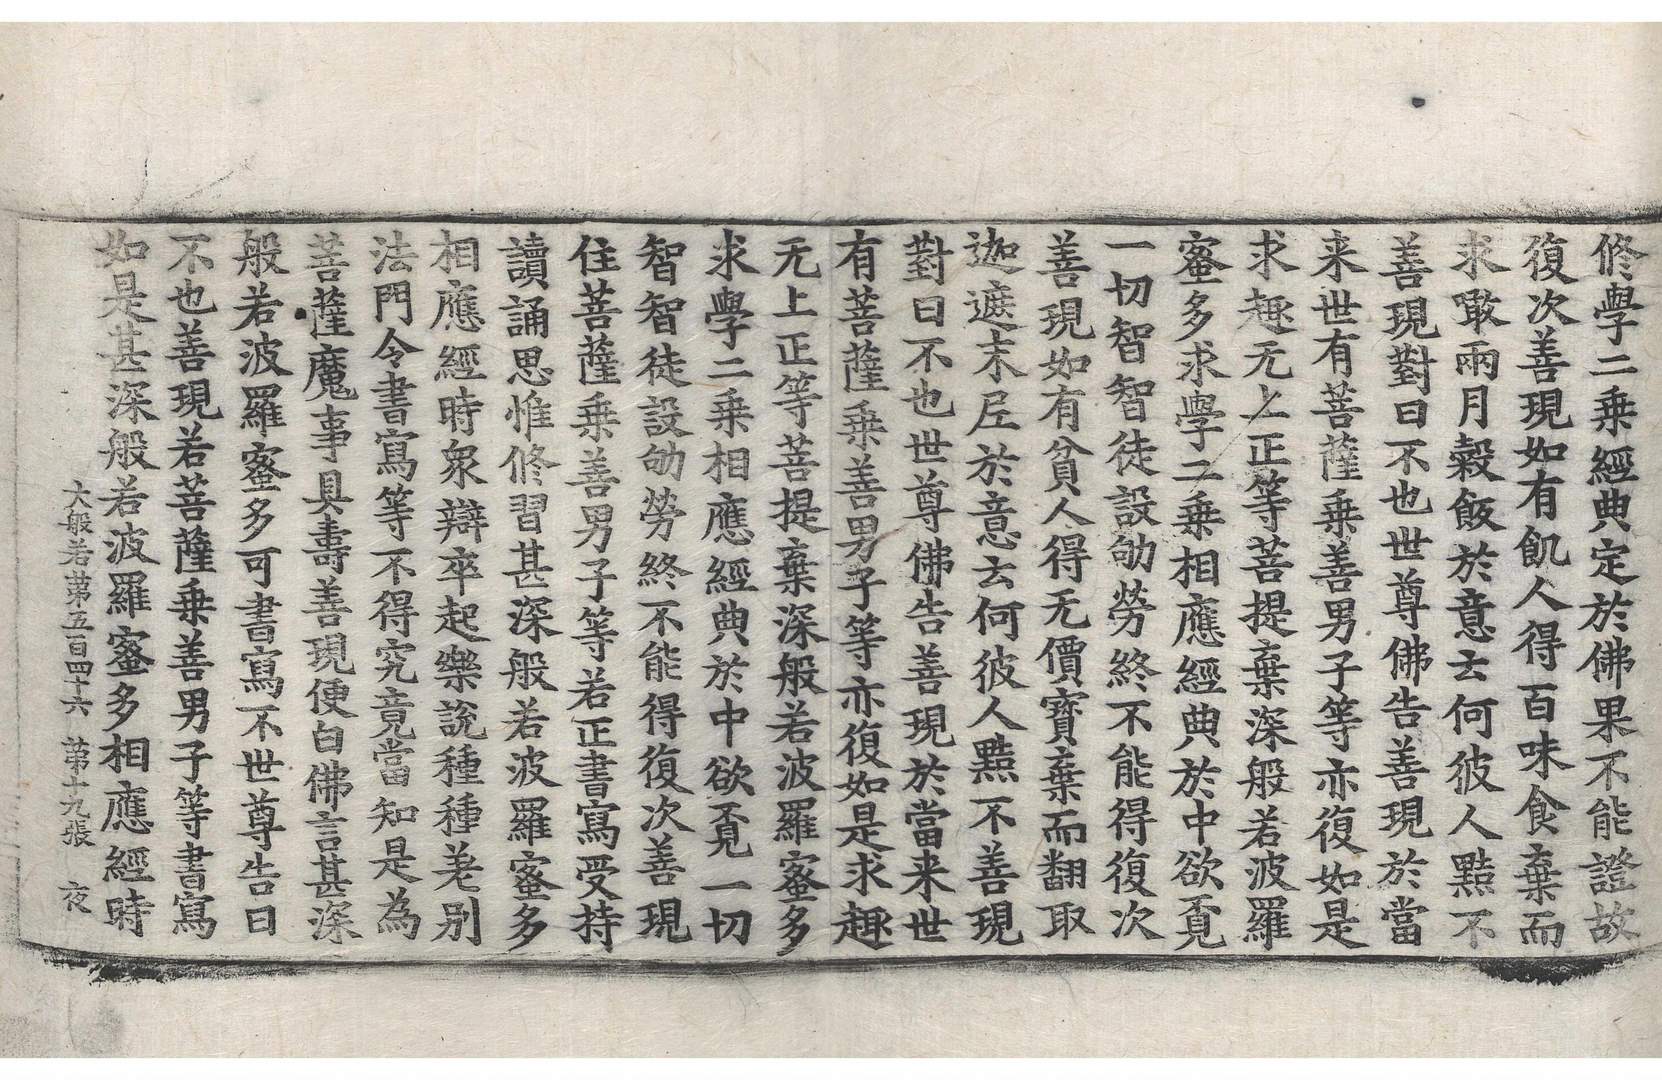 修學二乗經典定於佛果不能證故
復次善現如有飢人得百味食棄而
求噉兩月穀飯於意云何彼人黠不
善現對曰不也世尊佛告善現於當
来世有菩薩乗善男子等亦復如是
求趣无上正等菩提棄深般若波羅
蜜多求學二乗相應經典於中欲覓
一切智智徒設劬勞終不能得復次
善現如有貧人得无價寳棄而翻取
迦遮末尼於意云何彼人黠不善現
對曰不也世尊佛告善現於當来世
有菩薩乗善男子等亦復如是求趣
无上正等菩提棄深般若波羅蜜多
求學二乗相應經典於中欲覓一切
智智徒設劬勞終不能得復次善現
住菩薩乗善男子等若正書寫受持
讀誦思惟修習甚深般若波羅蜜多
相應經時衆辯卒起樂說種種差别
法門令書寫等不得究竟當知是為
菩薩魔事具壽善現便白佛言甚深
般若波羅蜜多可書寫不世尊告曰
不也善現若菩薩乗善男子等書寫
如是甚深般若波羅蜜多相應經時
大般若苐五百四十六 苐十九張 夜